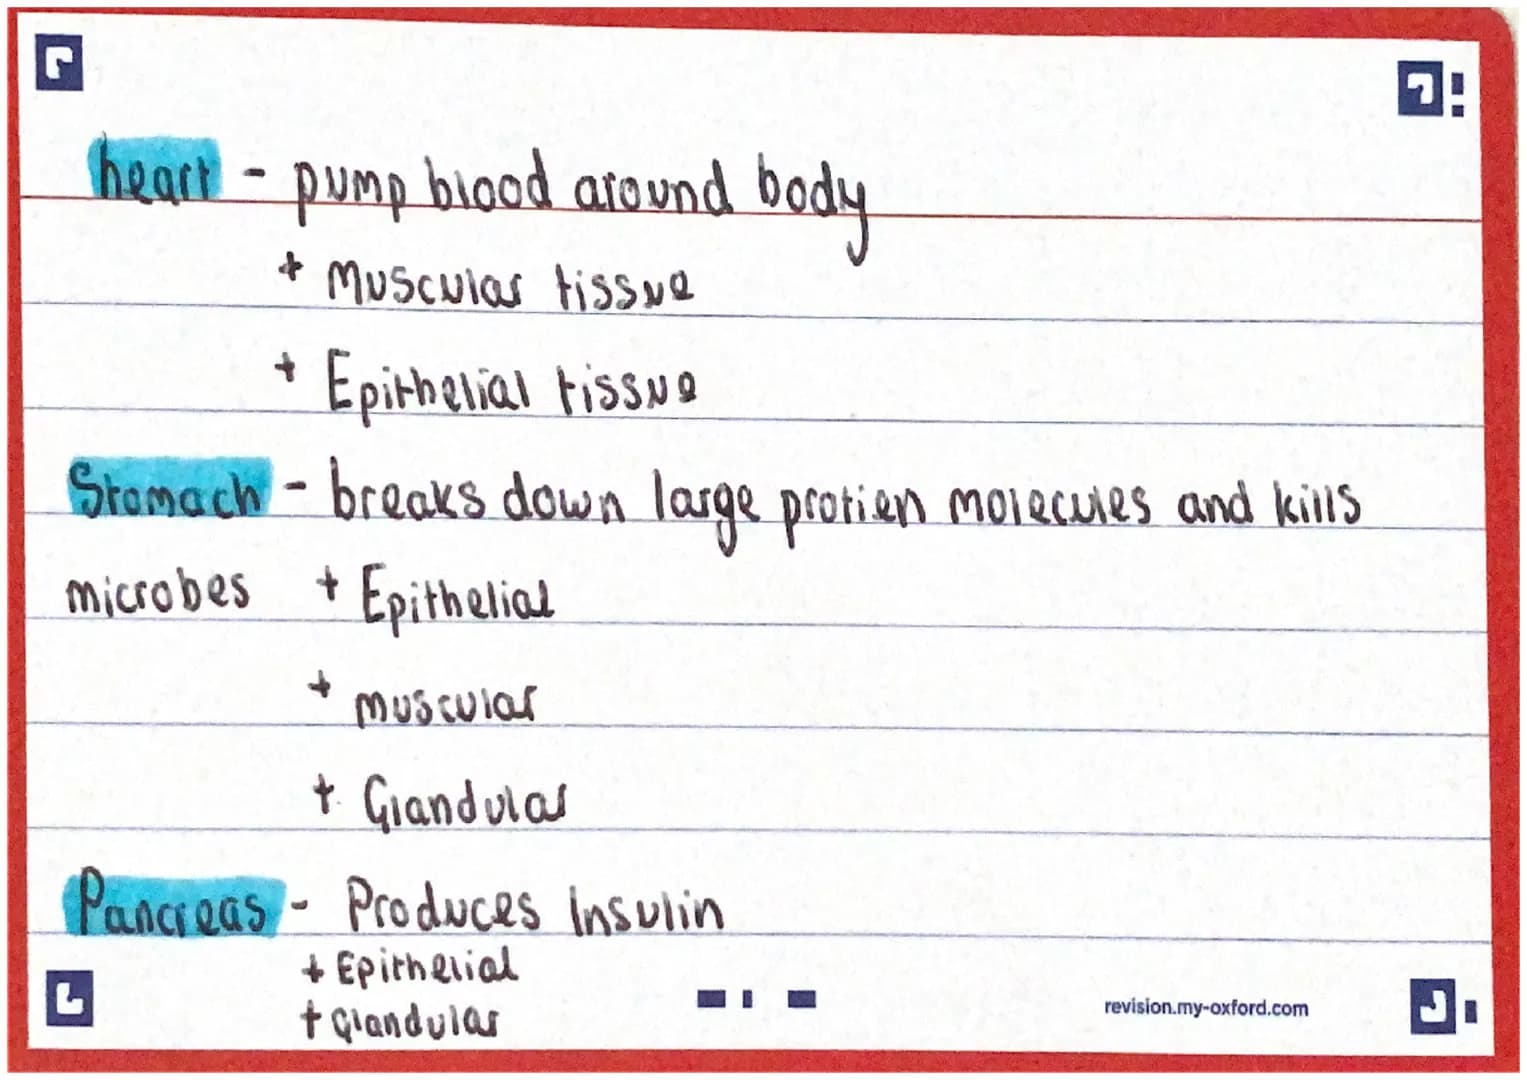 heart - pump blood around body
+ Muscular tissue
+ Epithelial tissue
Stomach - breaks down large protien molecules and kills
microbes + Epithelial
+ muscular
+ Glandular
Pancreas - Produces Insulin
+ Epithelial
+ Glandular
revision.my-oxford.com